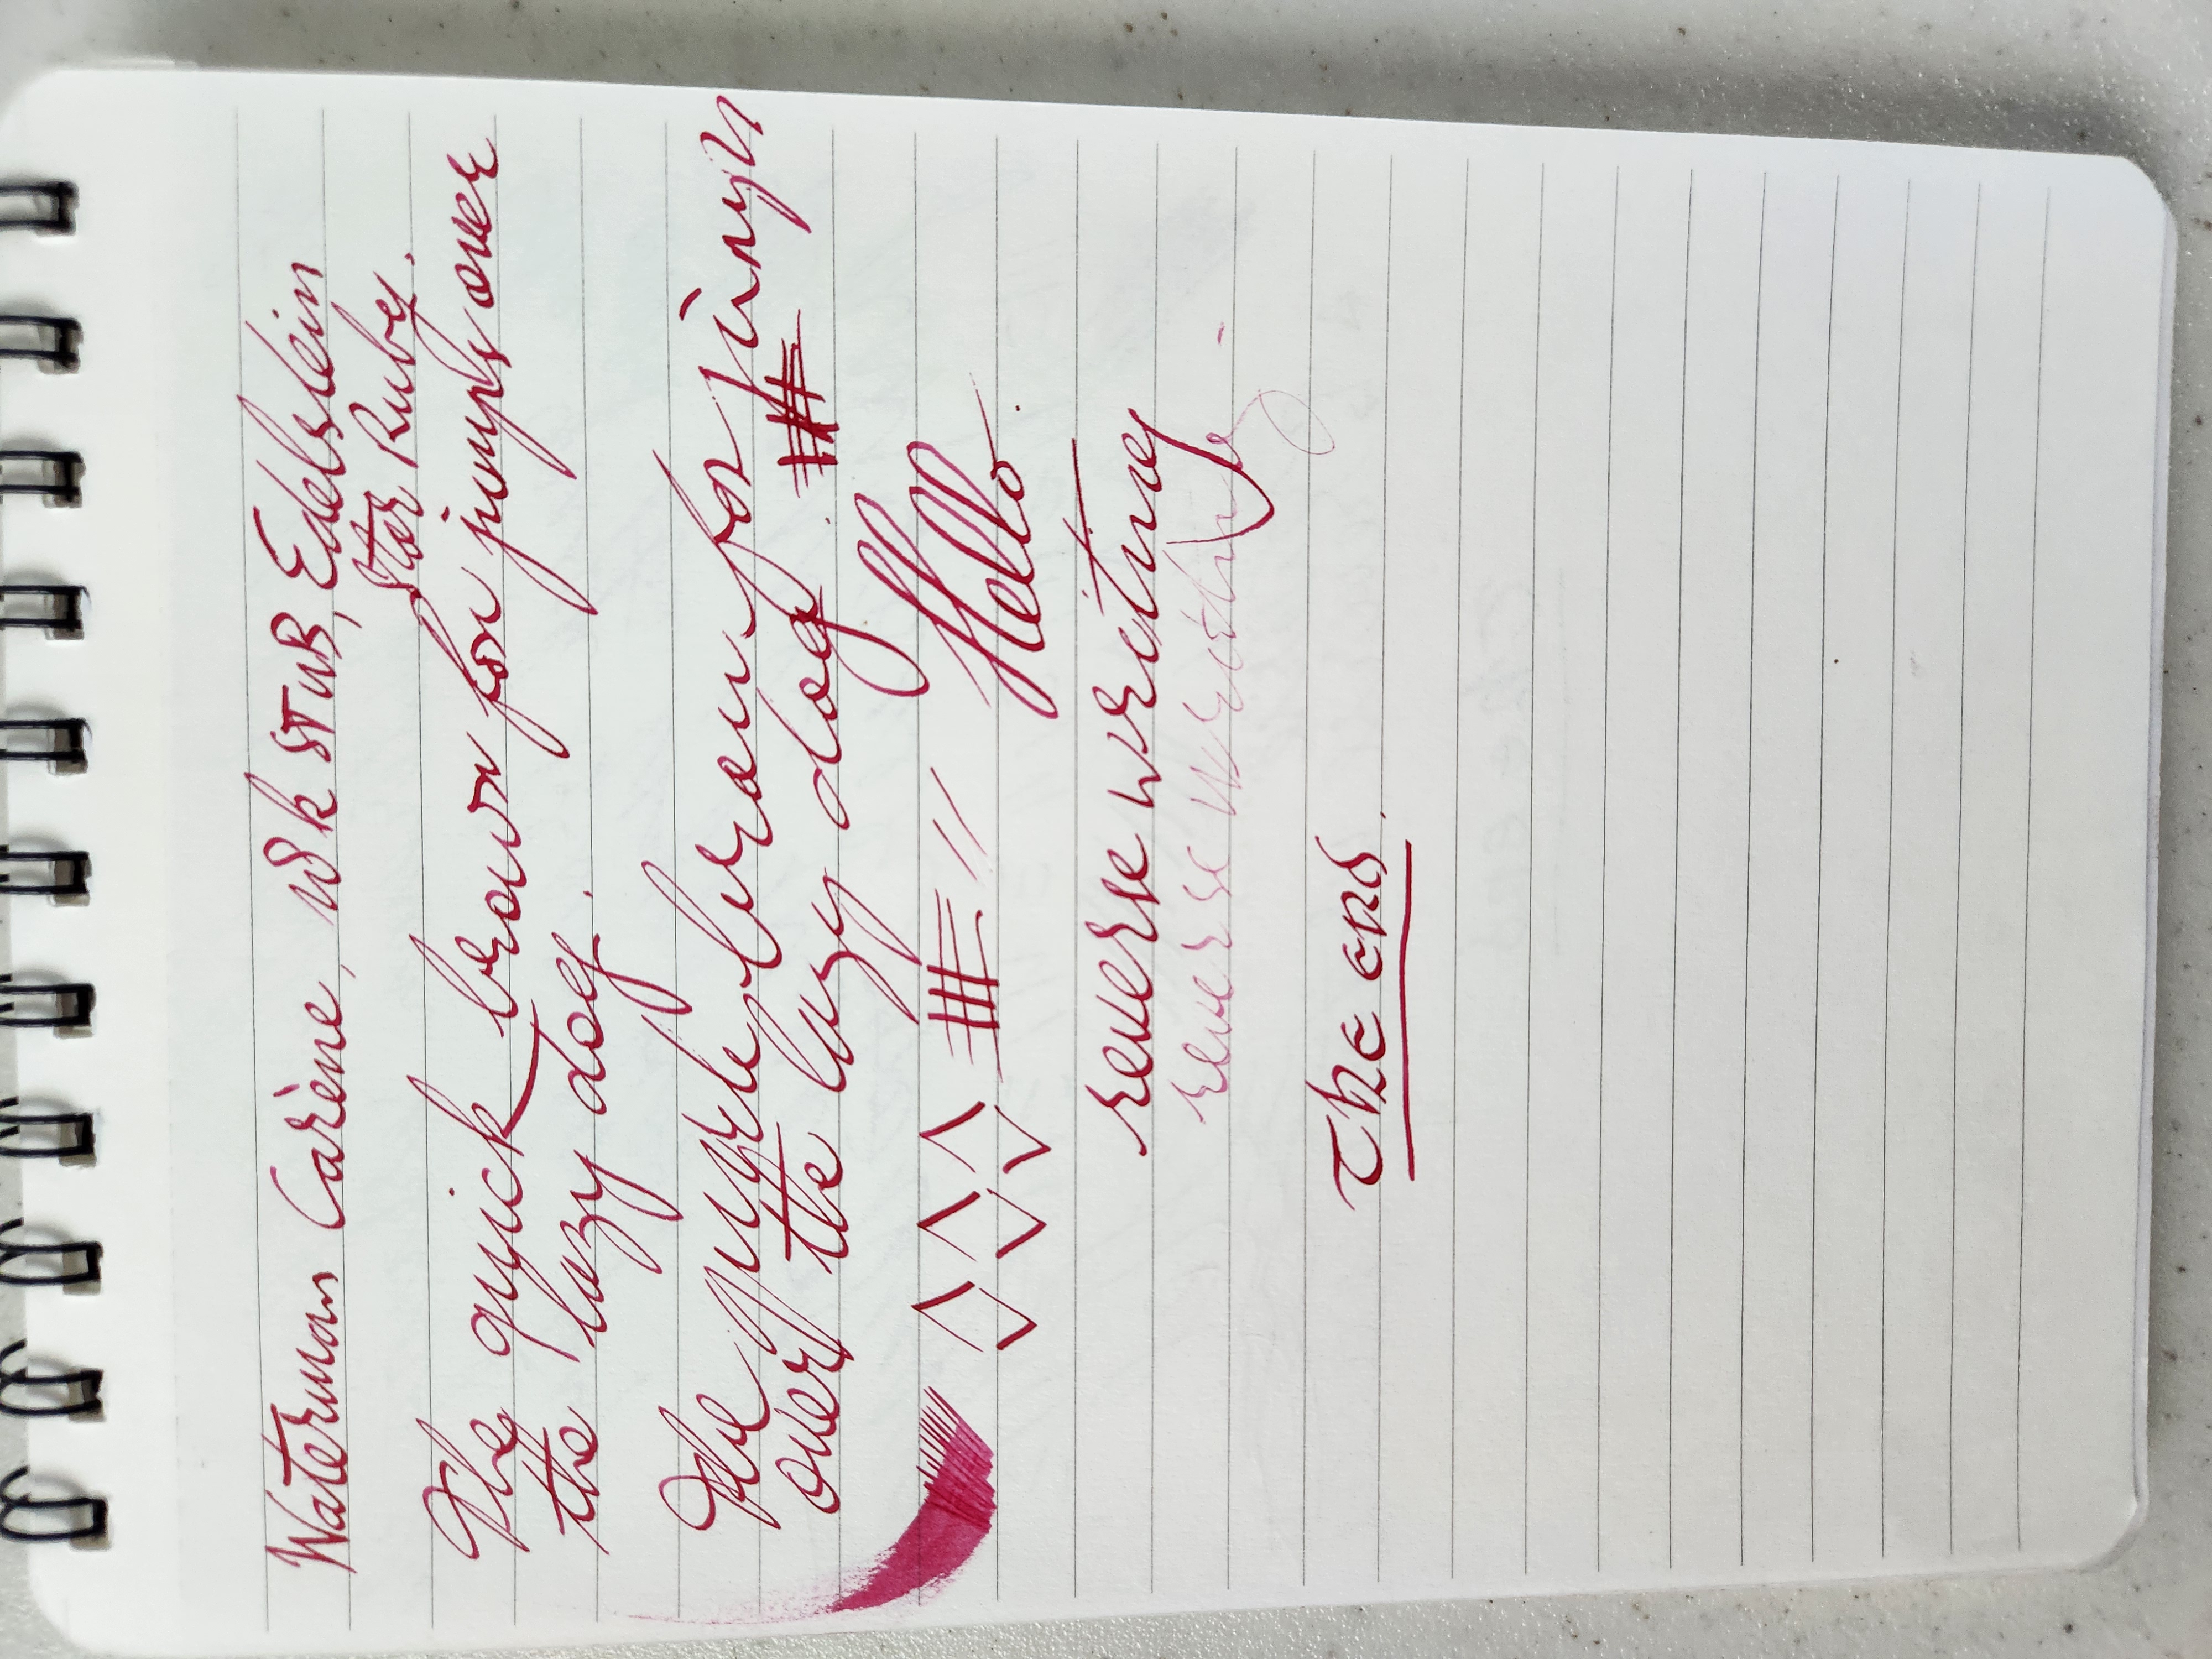 Waterman Carène, 18k STUB, Edelstein
Star Ruby.
The quick brown fox jumps over
the lazy dog.
The purple brown fox jumps
over the lazy dog.
Hello
reverse writing
reverse writing
The end.